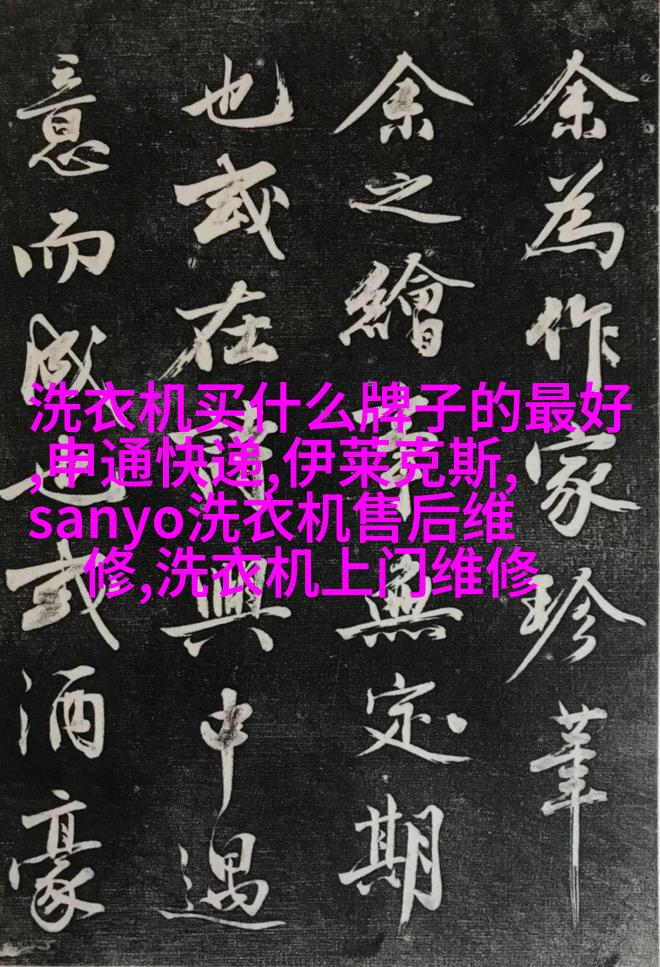 余為作家珍
余之繪事無定期
也或在詩興中遇
意而成也或酒豪
洗衣机买什么牌子的最好
,申通快递,伊莱克斯,
sanyo洗衣机售后维
修,洗衣机上门维修